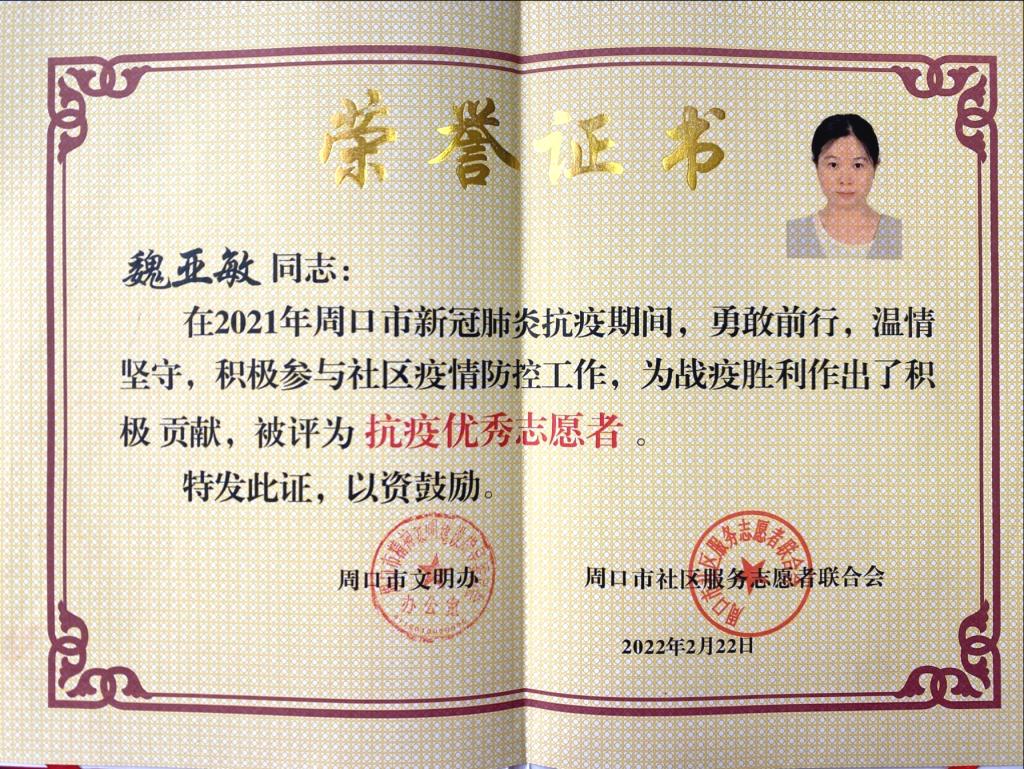 荣誉证书
魏亚敏 同志：
在2021年周口市新冠肺炎抗疫期间，勇敢前行，温情
坚守，积极参与社区疫情防控工作，为战疫胜利作出了积
极 贡献，被评为 抗疫优秀志愿者 。
特发此证，以资鼓励。
周口市文明办
办公室
周口市社区服务志愿者联合会
周口市社区服务志愿者联合会
2022年2月22日